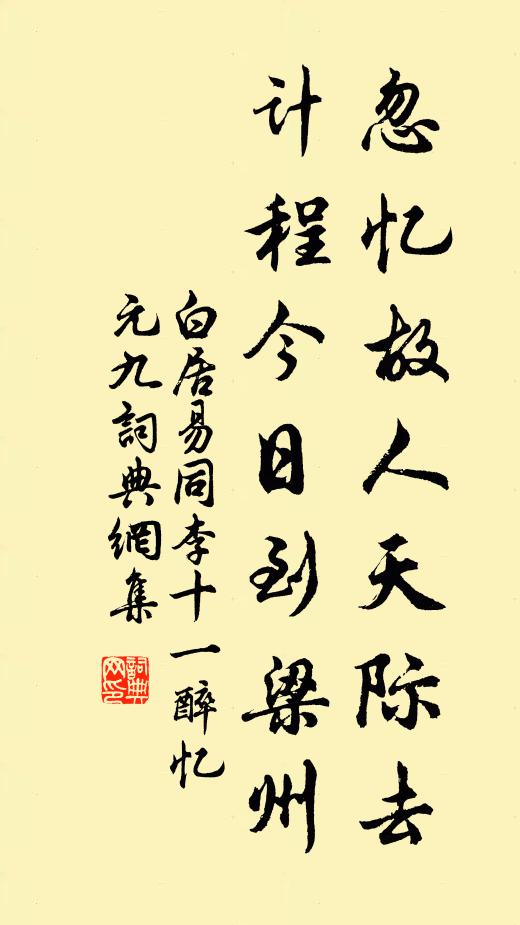 忽忆故人天际去
计程今日到梁州
白居易同李十一醉忆
元九詞典網集
詞典网印